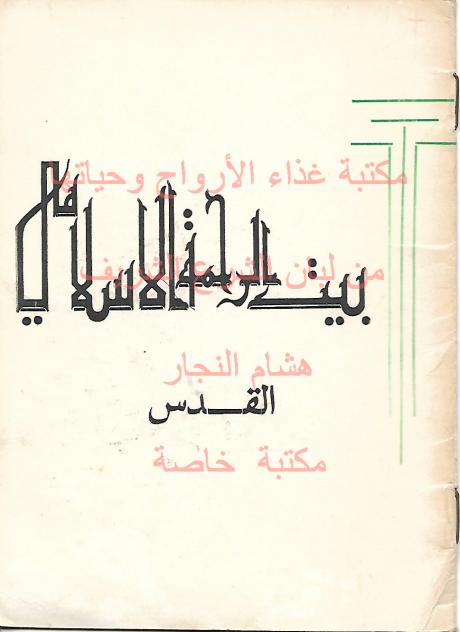 مكتبة غذاء الأرواح وحياتها
بيت الرحمة الاسلامي
من لبان الشرع الشريف
هشام النجار
القدس
مكتبة خاصة